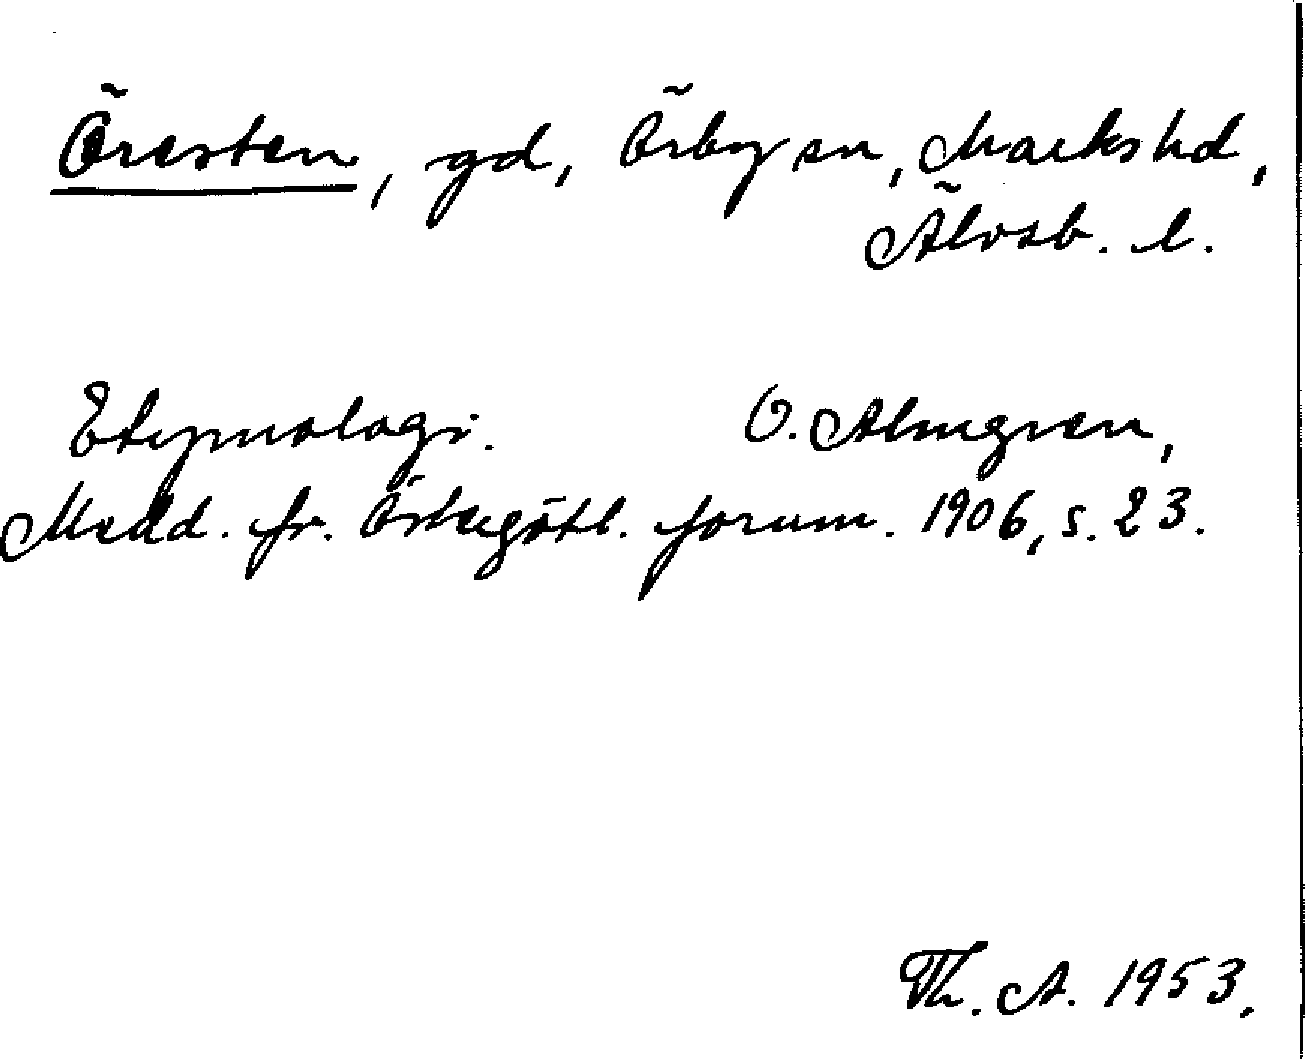 Öresten, gd, Örby sn, Marks hd,
Älvsb. l.
Etymologi. O. Almgren,
Medd. fr. Östergötl. fornm. 1906, s. 23.
Th. A. 1953.